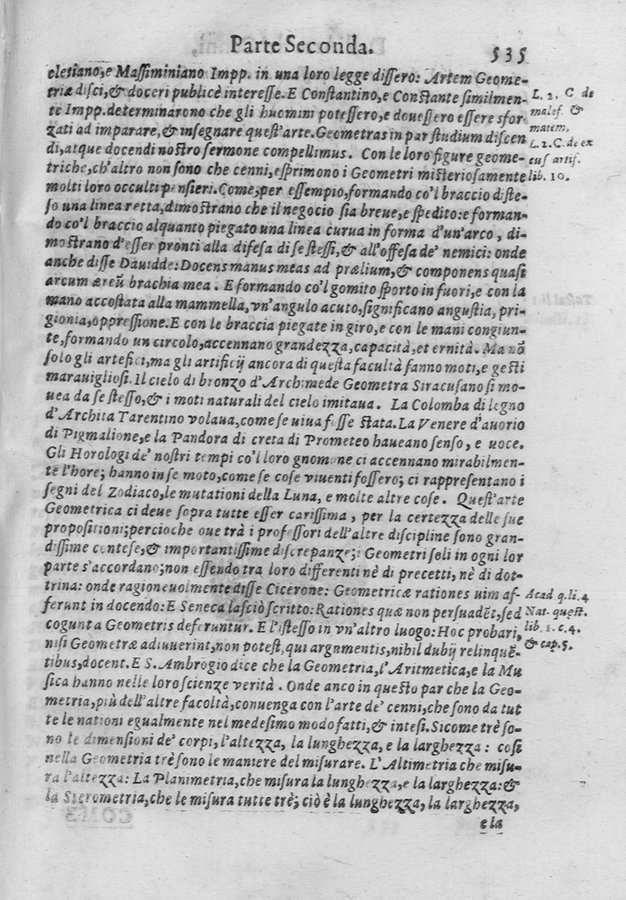 Parte Seconda. 535
cletiano, e Massiminiano Impp. in una loro legge dissero: Artem Geome-
triæ disci, & doceri publicè interesse. E Constantino, e Constante similmen-
te Impp. determinarono che gli huomini potessero, e douessero essere sfor-
zati ad imparare, & insegnare quest'arte. Geometras in par studium discen
di, atque docendi nostro sermone compellimus. Con le loro figure geome-
triche, ch'altro non sono che cenni, esprimono i Geometri misteriosamente
molti loro occulti pensieri. Come, per essempio, formando co'l braccio diste-
so una linea retta, dimostrano che il negocio sia breue, e spedito: e forman-
do co'l braccio alquanto piegato una linea curua in forma d'un'arco, di-
mostrano d'esser pronti alla difesa di se stessi, & all'offesa de' nemici: onde
anche disse Dauidde: Docens manus meas ad prælium, & componens quasi
arcum æreũ brachia mea. E formando co'l gomito sporto in fuori, e con la
mano accostata alla mammella, vn'angulo acuto, significano angustia, pri-
gionia, oppressione. E con le braccia piegate in giro, e con le mani congiun-
te, formando un circolo, accennano grandezza, capacità, et ernità. Ma nõ
solo gli artefici, ma gli artificij ancora di questa facultà fanno moti, e gesti
marauigliosi. Il cielo di bronzo d'Archimede Geometra Siracusano si mo-
uea da se stesso, & i moti naturali del cielo imitaua. La Colomba di legno
d'Archita Tarentino volaua, come se uiua fosse stata. La Venere d'auorio
di Pigmalione, e la Pandora di creta di Prometeo haueano senso, e uoce.
Gli Horologi de' nostri tempi co'l loro gnomone ci accennano mirabilmen-
te l'hore; hanno in se moto, come se cose viuenti fossero; ci rapresentano i
segni del Zodiaco, le mutationi della Luna, e molte altre cose. Quest'arte
Geometrica ci deue sopra tutte esser carissima, per la certezza delle sue
propositioni; percioche oue trà i professori dell'altre discipline sono gran-
dissime contese, & importantissime discrepanze; i Geometri soli in ogni lor
parte s'accordano; non essendo tra loro differenti nè di precetti, nè di dot-
trina: onde ragioneuolmente disse Cicerone: Geometricæ rationes uim af-
ferunt in docendo: E Seneca lasciò scritto: Rationes quæ non persuadẽt, sed
cogunt a Geometris deferuntur. E l'istesso in vn'altro luogo: Hoc probari,
nisi Geometræ adiuuerint, non potest, qui argnmentis, nihil dubij relinquẽ-
tibus, docent. E S. Ambrogio dice che la Geometria, l'Aritmetica, e la Mu
sica hanno nelle loro scienze verità. Onde anco in questo par che la Geo-
metria, più dell'altre facoltà, conuenga con l'arte de' cenni, che sono da tut
te le nationi egualmente nel medesimo modo fatti, & intesi. Sicome trè so-
no le dimensioni de' corpi, l'altezza, la lunghezza, e la larghezza: cosi
nella Geometria trè sono le maniere del misurare. L'Altimetria che misu-
ra l'altezza: La Planimetria, che misura la lunghezza, e la larghezza: &
la Sterometria, che le misura tutte trè; ciò è la lunghezza, la larghezza,
e la
L. 2. C de
malef. &
matem.
L. 2. C. de ex
cus artif.
lib. 10.
Acad q. li. 4
Nat. quest.
lib. 1. c. 4.
& cap. 5.